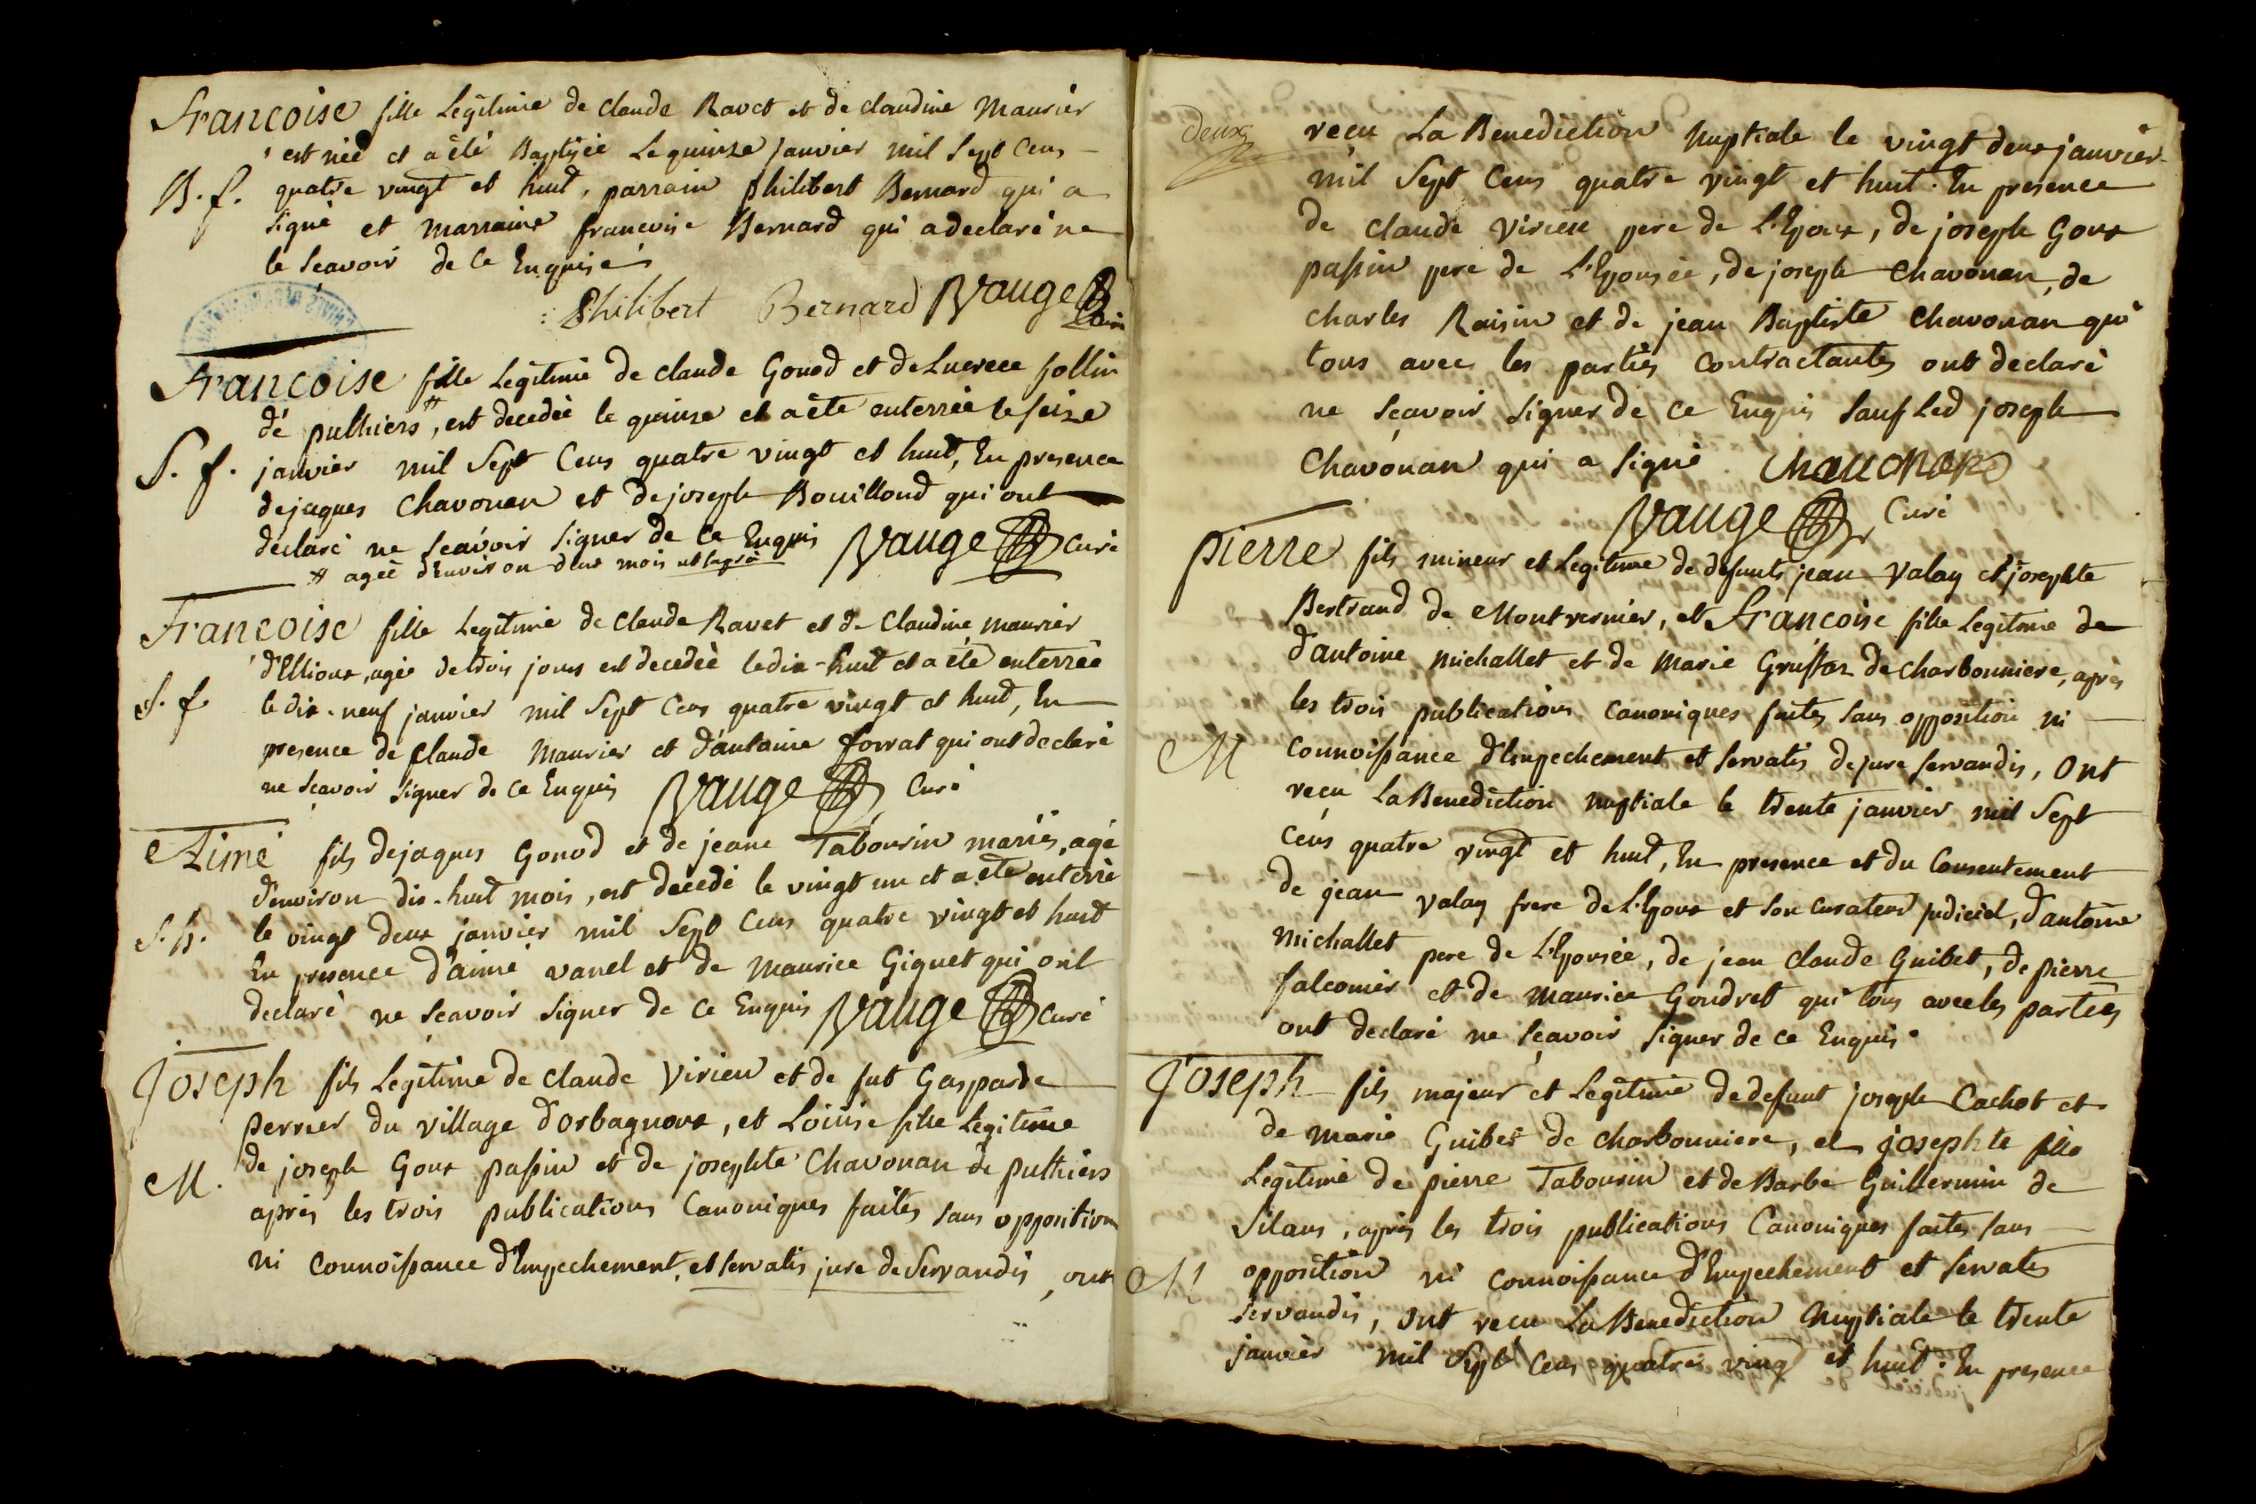 Francoise fille Legitime de claude Ravet et de claudine Maurier
est née et a été Baptisée Le quinze janvier mil Sept Cens
B. f. quatre vingt et huit, parrain philibert Bernard qui a
signé et marraine francoise Bernard qui a declaré ne
le scavoir de ce Enquisé
Philibert Bernard Vauge
Francoise fille Legitime de claude Gonod et de Lucrece follin
de puthiers #, est decedée le quinze et a été enterrée le seize
S. f. janvier mil Sept Cens quatre vingt et huit, En presence
de jaques Chavonan et de joseph Bouilloud qui ont
declaré ne scavoir signer de ce Enquis Vauge Curé
# agée d'Environ deux mois
Francoise fille Legitime de claude Ravet et de Claudine maurier
d'Ellioux, agée de trois jours est decedée le dix-huit et a été enterrée
S. f. le dix-neuf janvier mil Sept Cens quatre vingt et huit, En
presence de Claude Maurier et d'antoine forrat qui ont declaré
ne scavoir signer de ce Enquis Vauge Curé
Aimé fils de jaques Gonod et de jeane Tabourin mariés, agé
d'environ dix-huit mois, est decedé le vingt un et a été enterré
S. h. le vingt deux janvier mil Sept Cens quatre vingt et huit
En presence d'aimé vanel et de Maurice Giguet qui ont
declaré ne scavoir signer de ce Enquis Vauge Curé
Joseph fils Legitime de claude Virieu et de fut Gasparde
perrier du village d'orbagnoux, et Loüise fille Legitime
de joseph Goux passin et de josephte Chavonan de puthiers
M. après les trois publications Canoniques faites sans opposition
ni connoissance d'Empechement, et servatis jure de Servandis, ont
deux
reçu La Benediction nuptiale le vingt deux janvier
mil Sept Cens quatre vingt et huit. En presence
de claude Virieu pere de L'Epoux, de joseph Goux
passin pere de L'Epousée, de joseph Chavonan, de
charles Raisin et de jean Baptiste Chavonan qui
tous avec les parties Contractantes ont declaré
ne sçavoir signer de ce Enquis sauf Led joseph
Chavonan qui a signé. Chavonan
Vauge Curé
Pierre fils mineur et Legitime de defunts jean Valay et josephte
Bertrand de Montvernier, et Françoise fille Legitime de
d'antoine Michallet et de Marie de Charbonniere, après
les trois publications Canoniques faites sans opposition ni
M connoissance d'Empechement et servatis de jure servandis, Ont
reçu La Benediction nuptiale le trente janvier mil Sept
Cens quatre vingt et huit, En presence et du Consentement
de jean valay frere de L'Epoux et son curateur judiciel, d'antoine
Michallet pere de L'Epousée, de jean claude Guibet, de pierre
falconnier et de Maurice Goudret qui tous avec les parties
ont declaré ne sçavoir signer de ce Enquis.
Joseph fils majeur et Legitime de defunt joseph Cachot et
de Marie Guibet de Charbonniere, et josephte fille
Legitime de pierre Tabourin et de Barbe Guillermin de
Silans, après les trois publications Canoniques faites sans
M opposition ni connoissance d'Empechement et servatis
servandis, ont reçu La Benediction Nuptiale le trente
janvier mil Sept Cens quatre vingt et huit. En presence